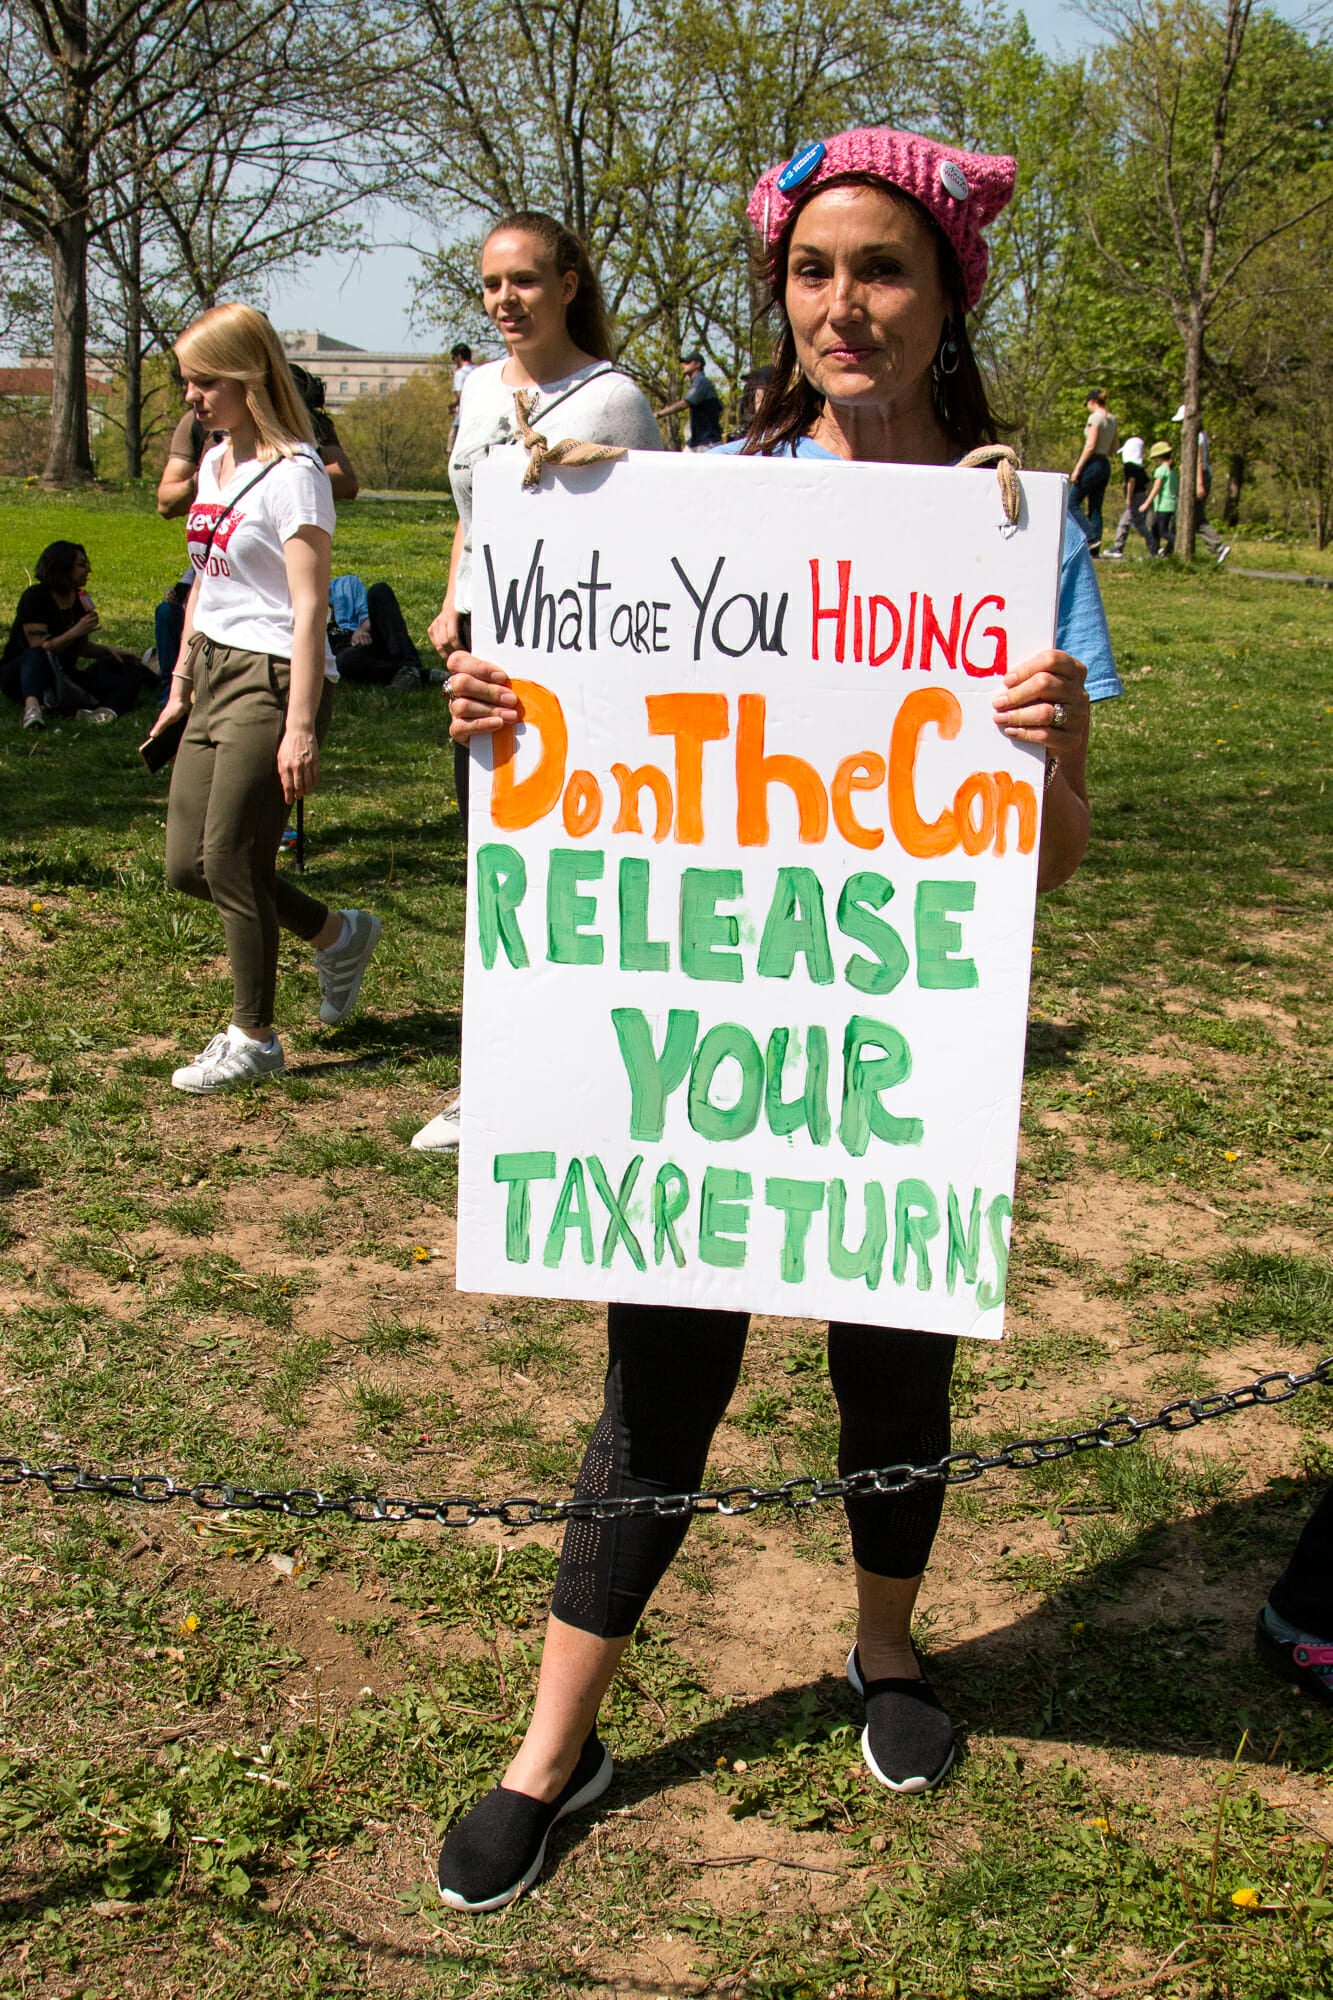 What ARE You HIDING
DonTheCon
RELEASE
YOUR
TAXRETURNS
Levi's